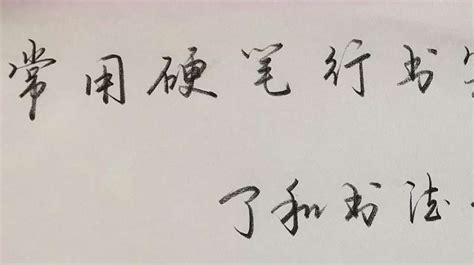 常用硬笔行书
了和书法